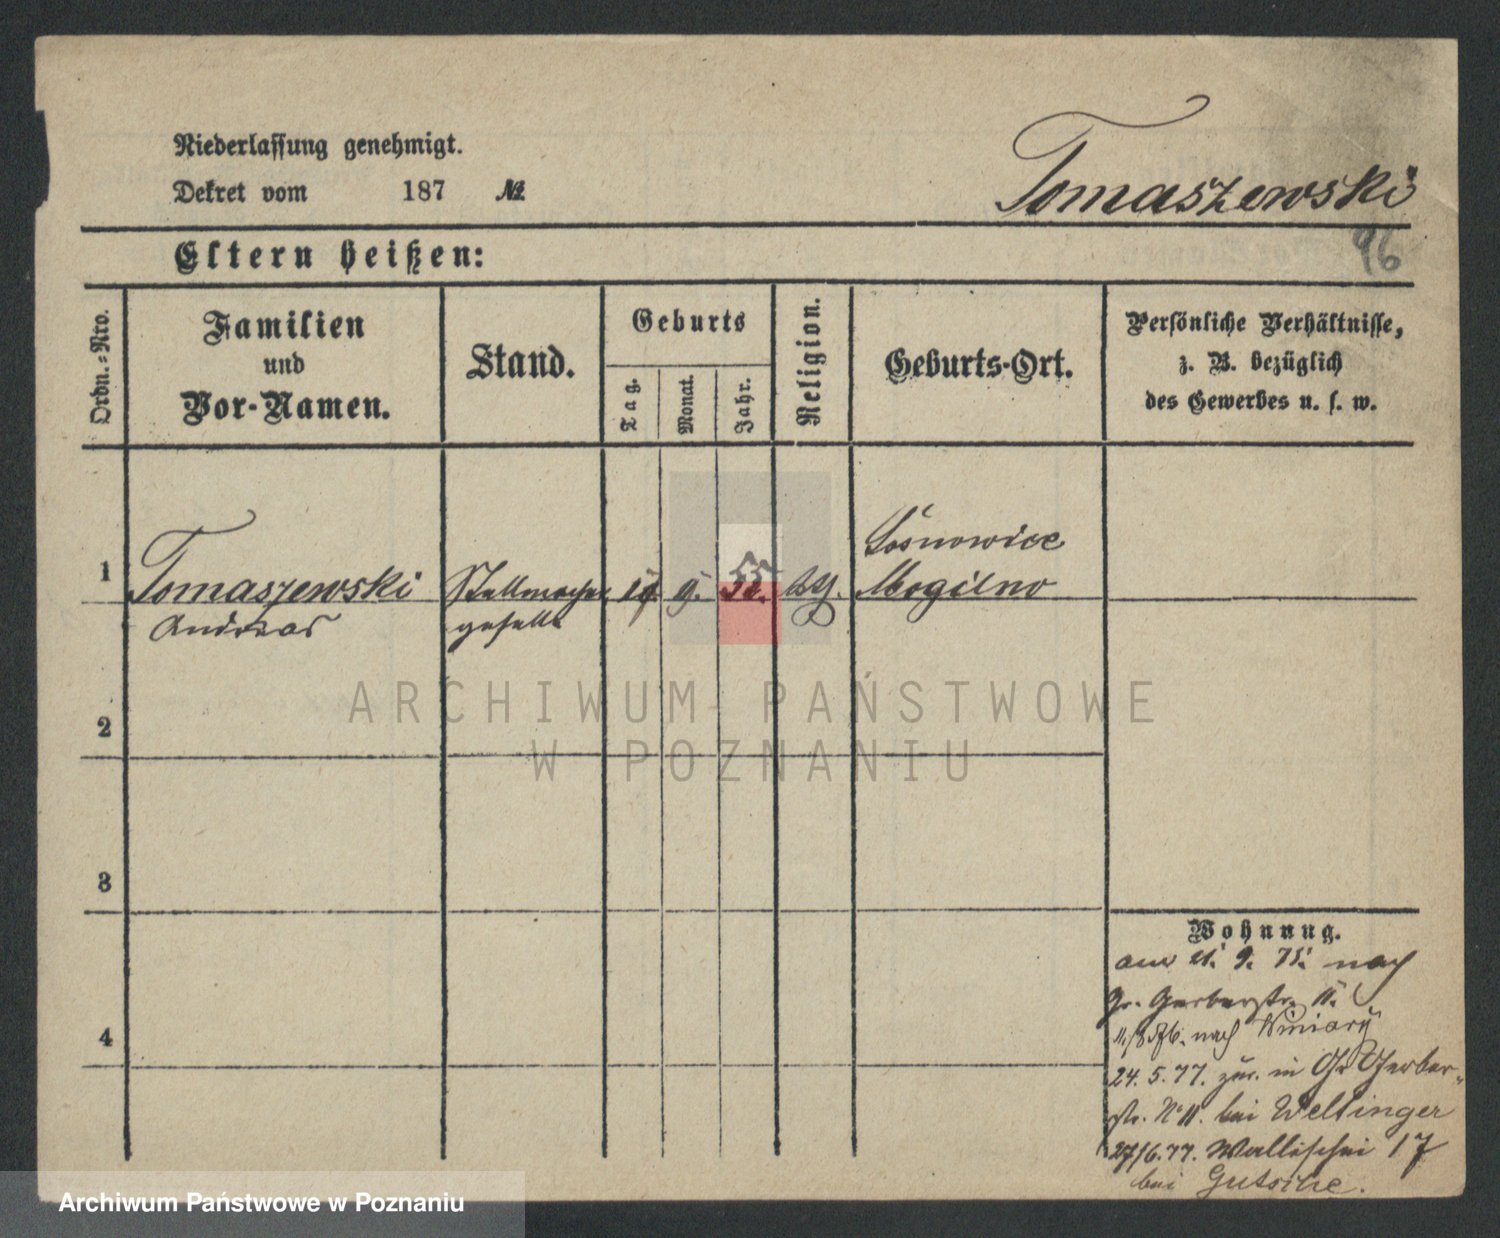 Niederlassung genehmigt.
Dekret vom 187 №
Tomaszewski
96
Eltern heißen:
Ordn.-Nro.
Familien
und
Vor-Namen.
Stand.
Geburts
Tag.
Monat.
Jahr.
Religion.
Geburts-Ort.
Persönliche Verhältnisse,
z. B. bezüglich
des Gewerbes u. s. w.
1
Tomaszewski
Andreas
Stellmacher
geselle
9.
55
Mogilno
ARCHIWUM PAŃSTWOWE
W POZNANIU
2
3
4
Wohnung.
am 9. 75. nach
Gr. Gerberstr. 11.
nach Winiary
24. 5. 77. zur. in Gr Gerber-
str. No 11. bei Weltinger
27/6.77. Wallischei 17
bei
Archiwum Państwowe w Poznaniu